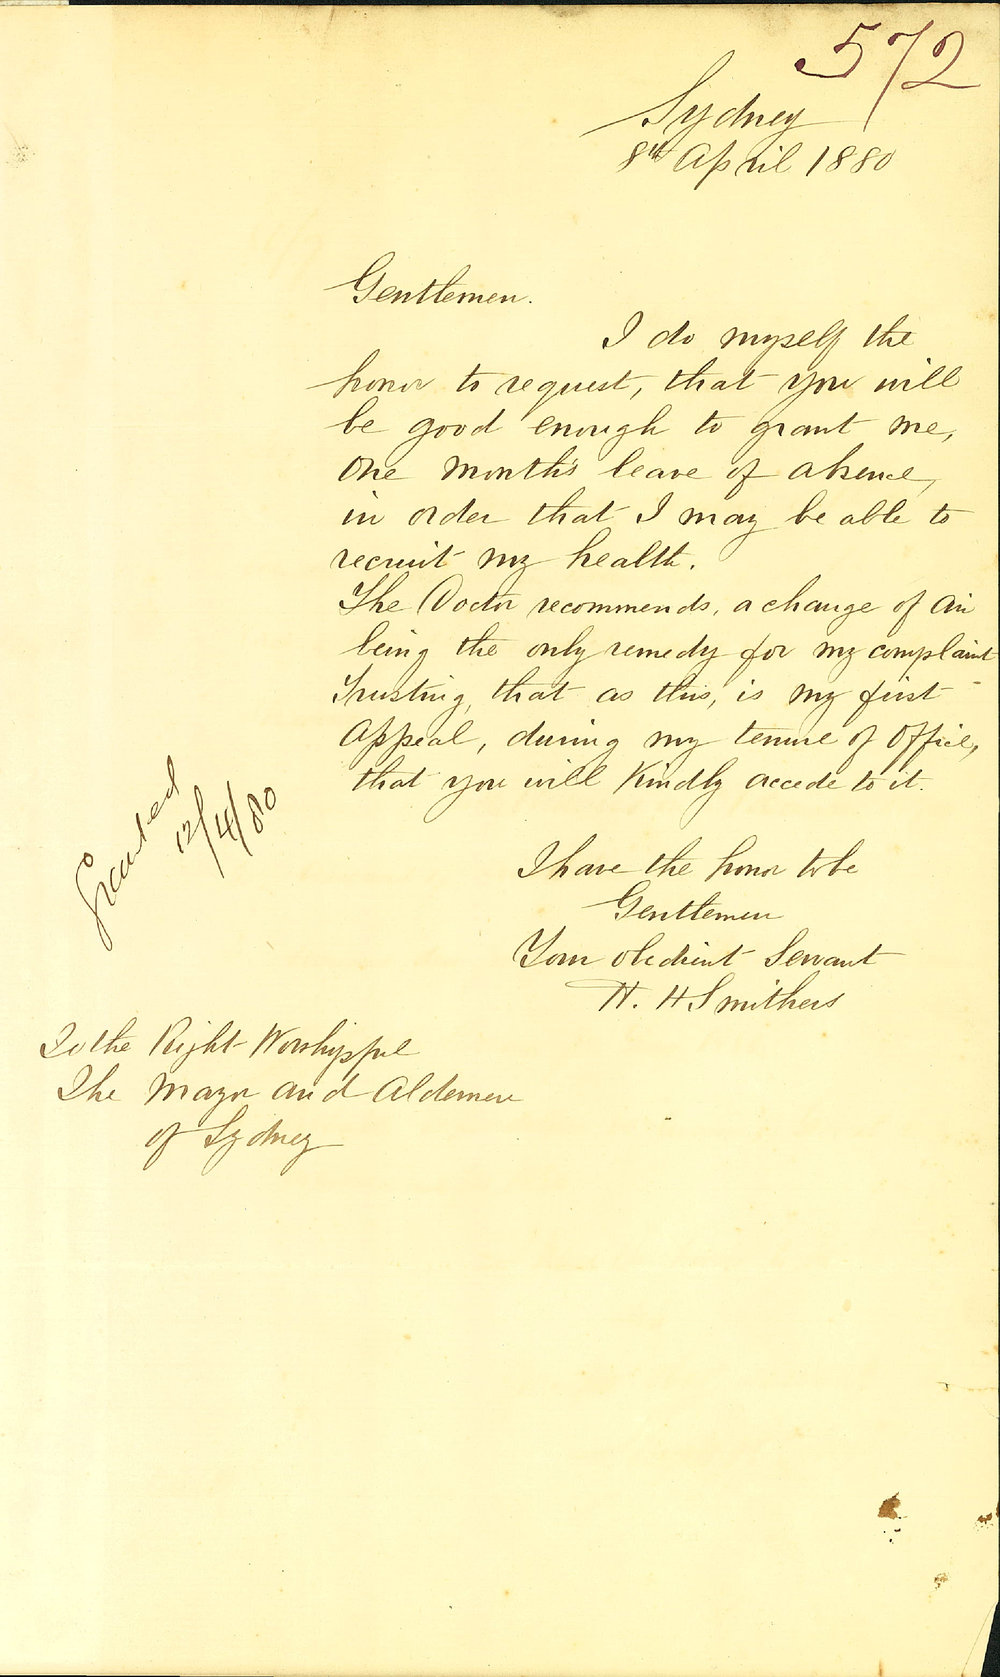 572
Sydney
8th April 1880
Gentlemen.
I do myself the
honor to request, that you will
be good enough to grant me,
One month's leave of absence,
in order that I may be able to
recruit my health.
The Doctor recommends, a change of air
being the only remedy for my complaint
Trusting, that as this, is my first
Appeal, during my tenure of Office,
that you will Kindly accede to it.
Granted
12/4/80
I have the honor to be
Gentlemen
Your obedient Servant
H. H Smithers
To the Right Worshipful
The Mayor and Aldermen
of Sydney